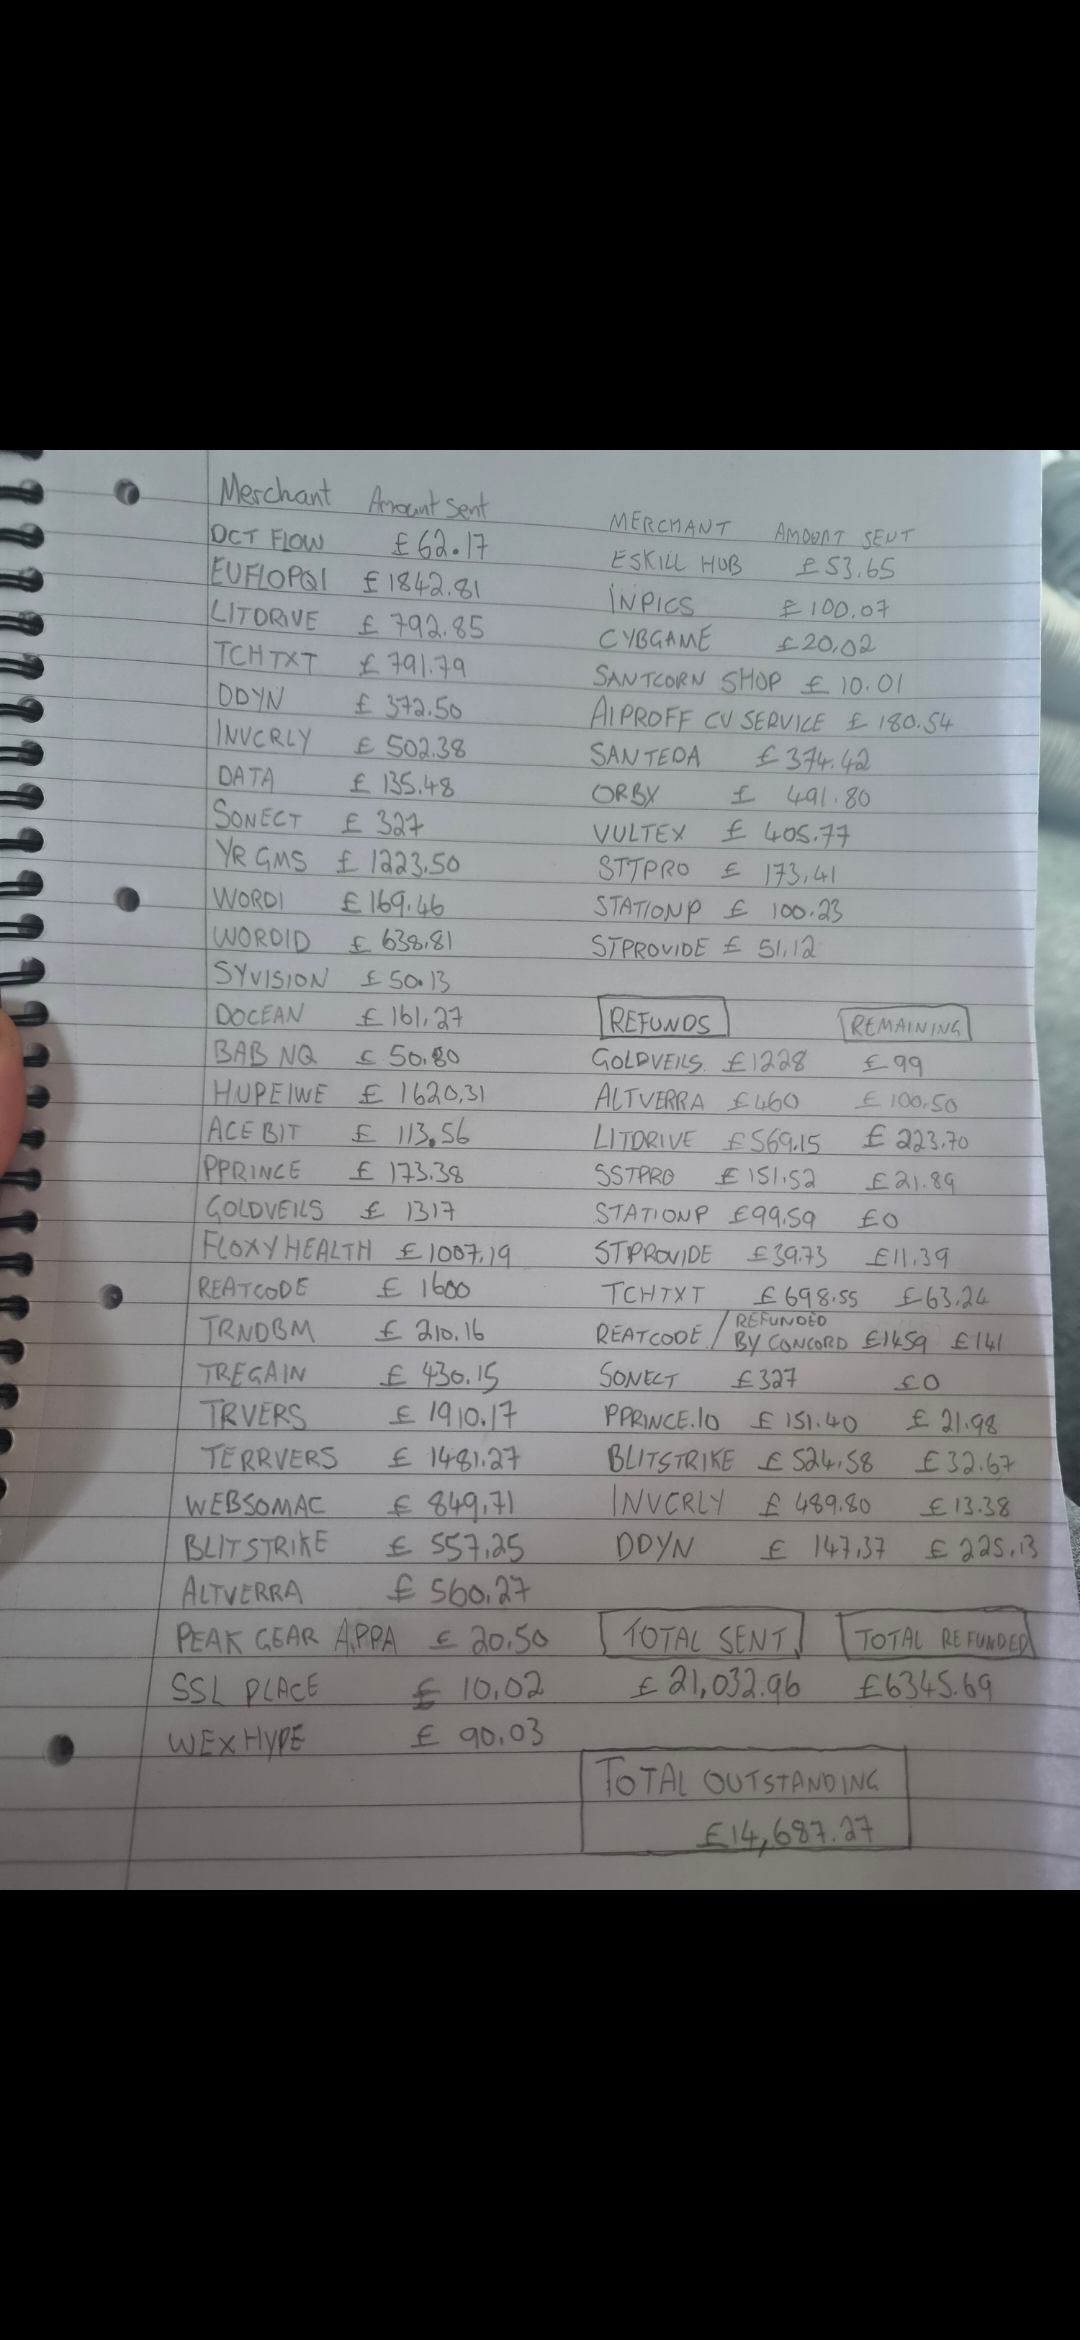 Merchant Amount Sent
DCT FLOW £62.17
EUFLOPQI £1842.81
LITDRIVE £792.85
TCHTXT £791.79
DDYN £372.50
INVCRLY £502.38
DATA £135.48
SONECT £327
YR GMS £1223.50
WORDI £169.46
WORDID £638.81
SYVISION £50.13
DOCEAN £161.27
BAB NQ £50.80
HUPEIWE £1620.31
ACE BIT £113.56
PPRINCE £173.38
GOLDVEILS £1317
FLOXYHEALTH £1007.19
REATCODE £1600
TRNDBM £210.16
TREGAIN £430.15
TRVERS £1910.17
TERRVERS £1481.27
WEBSOMAC £849.71
BLITSTRIKE £557.25
ALTVERRA £560.27
PEAK GEAR APPA £20.50
SSL PLACE £10.02
WEXHYPE £90.03
MERCHANT AMOUNT SENT
ESKILL HUB £53.65
INPICS £100.07
CYBGAME £20.02
SANTCORN SHOP £10.01
AIPROFF CV SERVICE £180.54
SANTEDA £374.42
ORBX £491.80
VULTEX £405.77
STTPRO £173.41
STATIONP £100.23
STPROVIDE £51.12
REFUNDS REMAINING
GOLDVEILS £1228 £99
ALTVERRA £460 £100.50
LITDRIVE £569.15 £223.70
SSTPRO £151.52 £21.89
STATIONP £99.59 £0
STPROVIDE £39.73 £11.39
TCHTXT £698.55 £63.24
REATCODE / REFUNDED BY CONCORD £1459 £141
SONECT £327 £0
PPRINCE.IO £151.40 £21.98
BLITSTRIKE £524.58 £32.67
INVCRLY £489.80 £13.38
DDYN £147.37 £225.13
TOTAL SENT TOTAL REFUNDED
£21,032.96 £6345.69
TOTAL OUTSTANDING
£14,687.27